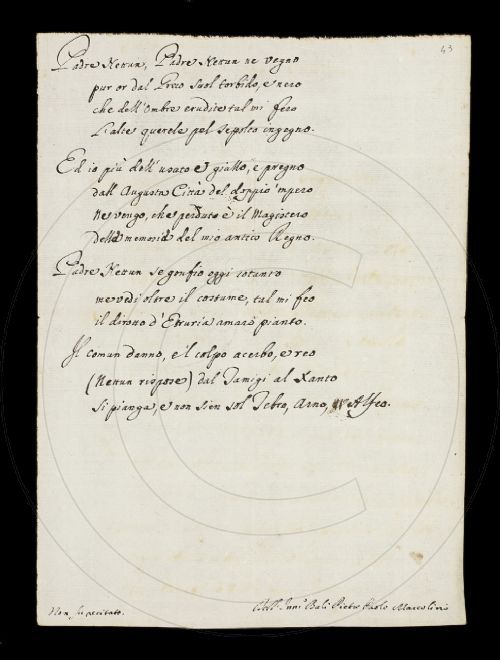 43
Padre Nettun, Padre Nettun ne vegno
pur or dal Greco suol torbido, e nero
che dell'Ombre erudite tal mi fero
L'alte querele pel sepolto ingegno.
Ed io più dell'usato e giallo, e pregno
dall'Augusta Città del doppio impero
Ne vengo, che perduto è il Magistero
della memoria del mio antico Regno.
Padre Nettun se gonfio oggi cotanto
mevedi oltre il costume, tal mi feo
il dirotto d'Etruria amaro pianto.
Il comun danno, e'l colpo acerbo, e reo
(Nettun rispose) dal Tamigi al Xanto
si pianga, e non sien sol Tebro, Arno, Alfeo.
Non fu recitato.
Bali Pietro Paolo Marcolini